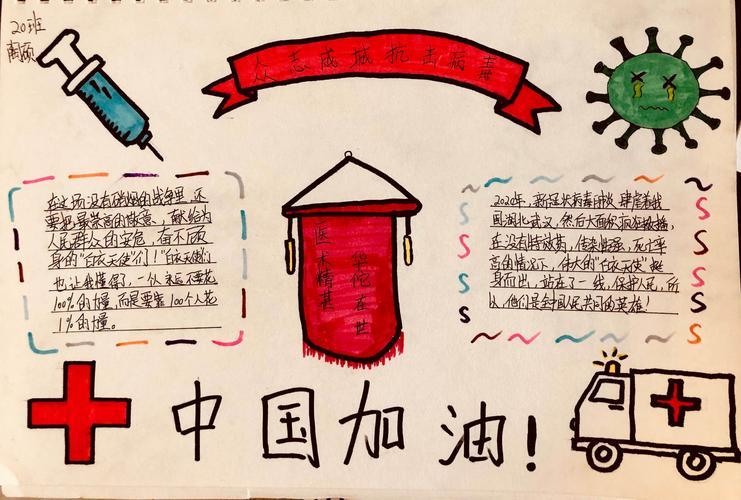 20班
众志成城抗击病毒
在这场没有硝烟的战争里,还
要把最崇高的敬意,献给为
人民群众的安危,奋不顾
身的“白衣天使”们!“白衣天使”们
也让我懂得,一个人永远不要花
100%的力量,而是要靠100个人花
1%的力量。
医术精甚
华佗在世
2020年,新冠状病毒肺炎肆虐着我
国湖北武汉,然后大面积疯狂散播,
在没有特效药,传染性强,死亡率
高的情况下,伟大的“白衣天使”挺
身而出,站在了一线,保护人民,所
以他们是全国人民共同的英雄!
中国加油!